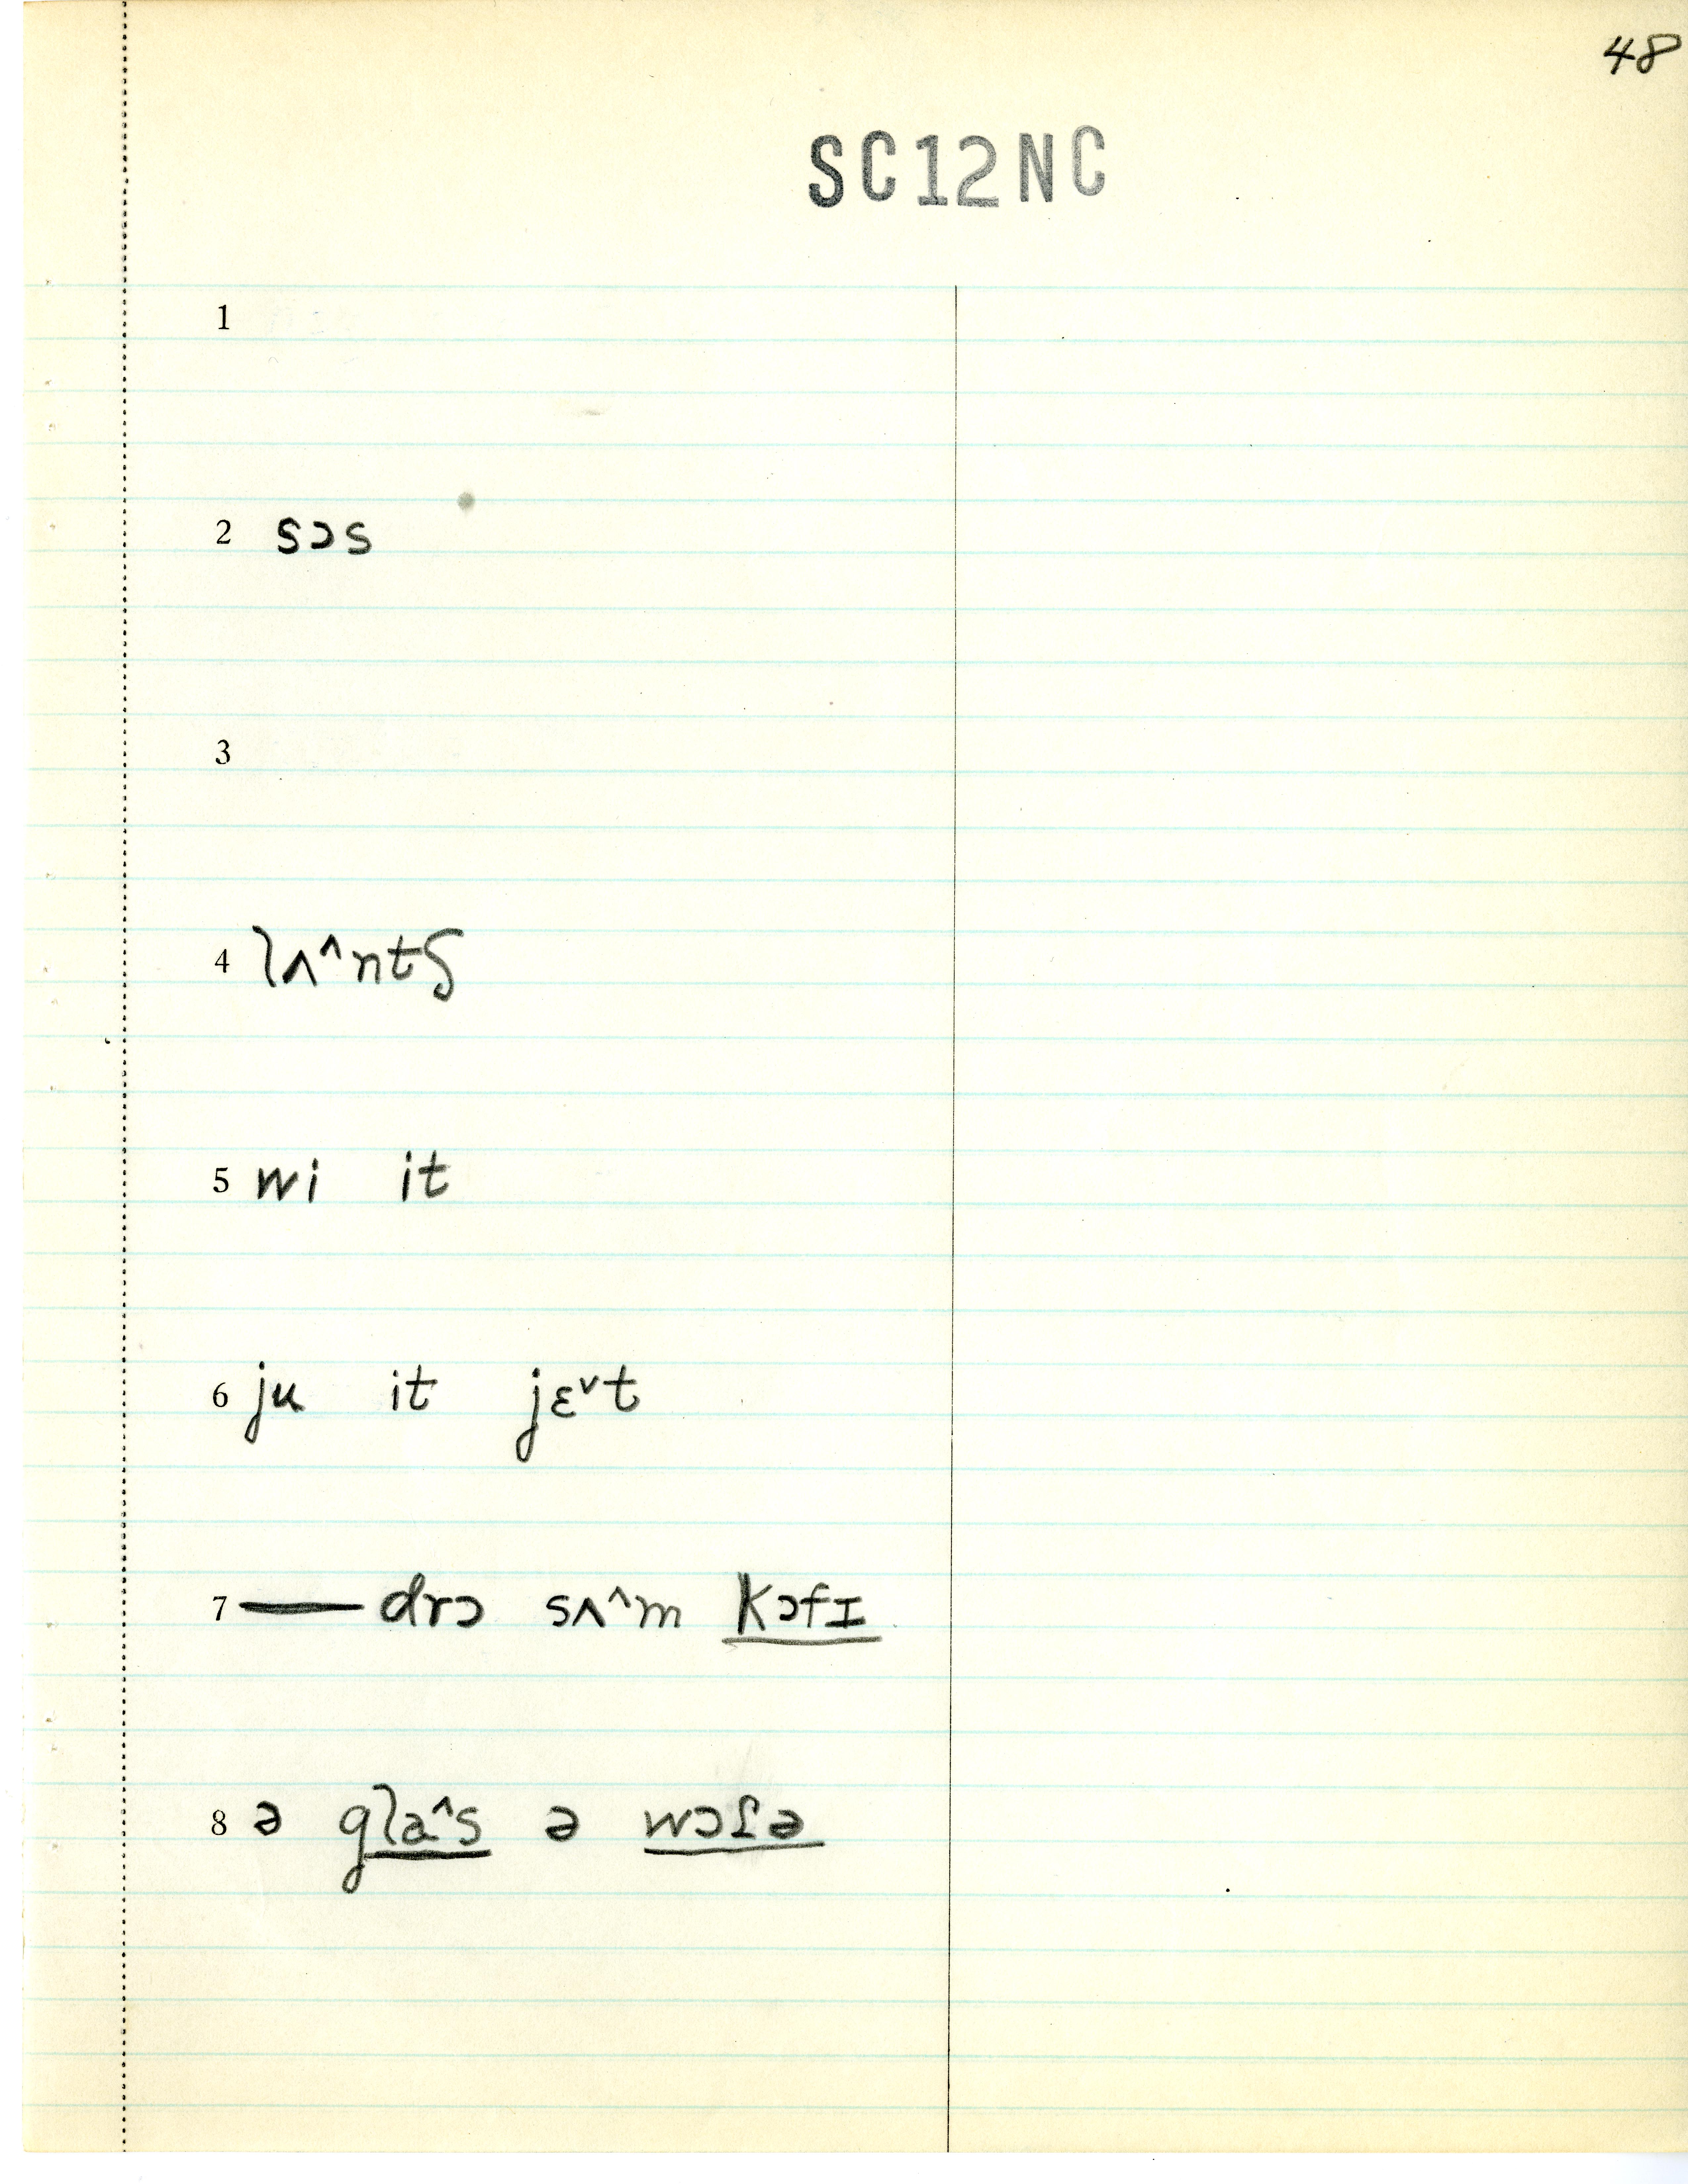 48
SC12NC
1
2 sɔs
3
4 lʌ^ntʃ
5 wi it
6 ju it jɛˇt
7 — drɔ sʌ^m kɔfɪ
8 ə gla^s ə wɔſə